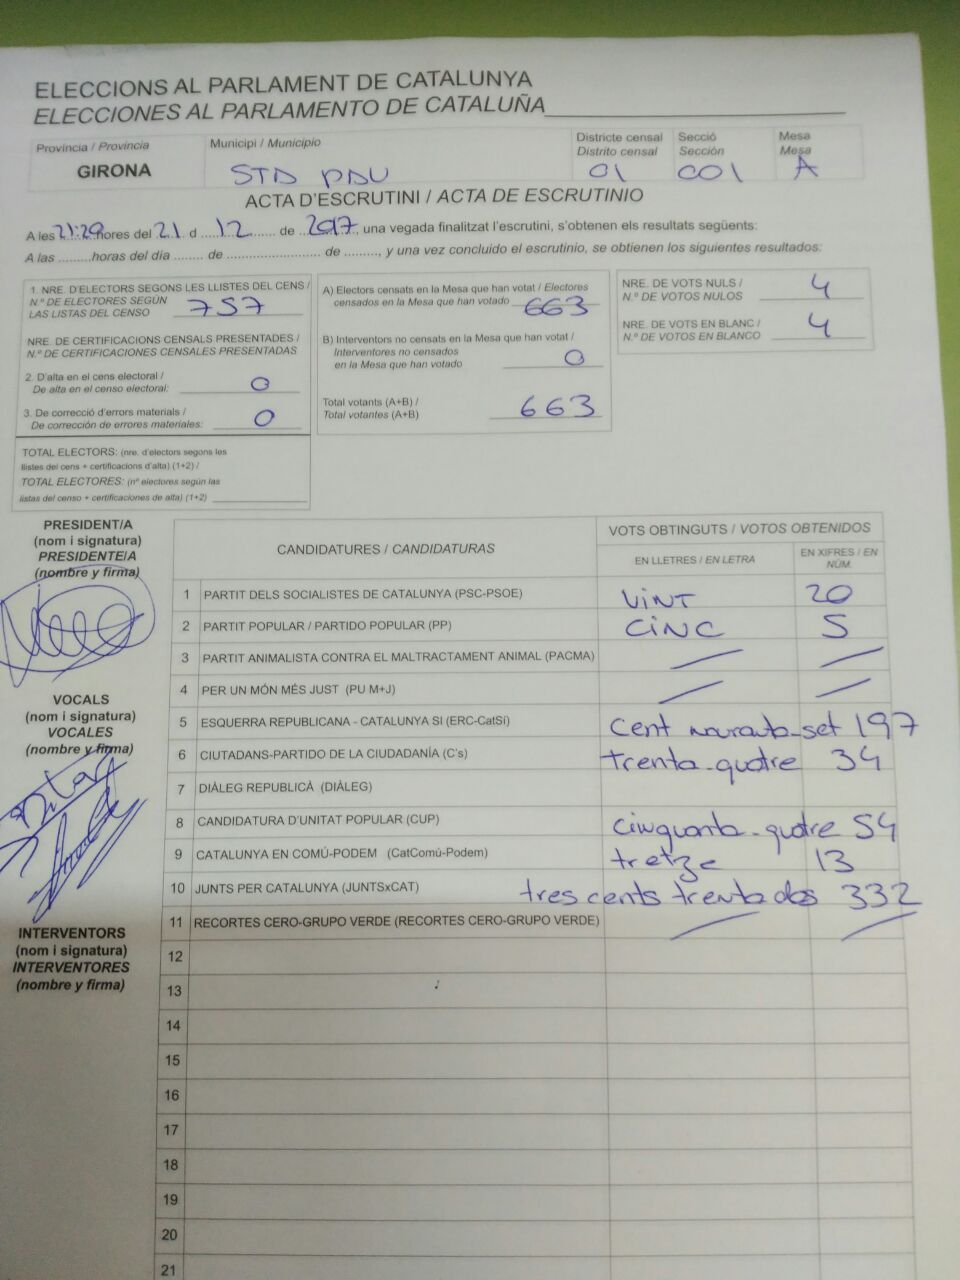 ELECCIONS AL PARLAMENT DE CATALUNYA
ELECCIONES AL PARLAMENTO DE CATALUÑA
Província / Provincia
GIRONA
Municipi / Municipio
STD PDU
Districte censal
Distrito censal
01
Secció
Sección
001
Mesa
Mesa
A
ACTA D'ESCRUTINI / ACTA DE ESCRUTINIO
A les 21:20 hores del 21 d 12 de 2017, una vegada finalitzat l'escrutini, s'obtenen els resultats següents:
A las .........horas del día ....... de .......................... de ........., y una vez concluido el escrutinio, se obtienen los siguientes resultados:
1. NRE. D'ELECTORS SEGONS LES LLISTES DEL CENS /
N.º DE ELECTORES SEGÚN
LAS LISTAS DEL CENSO 757
NRE. DE CERTIFICACIONS CENSALS PRESENTADES /
N.º DE CERTIFICACIONES CENSALES PRESENTADAS
2. D'alta en el cens electoral /
De alta en el censo electoral: 0
3. De correcció d'errors materials /
De corrección de errores materiales: 0
TOTAL ELECTORS: (nre. d'electors segons les
llistes del cens + certificacions d'alta) (1+2) /
TOTAL ELECTORES: (nº electores según las
listas del censo + certificaciones de alta) (1+2)
A) Electors censats en la Mesa que han votat / Electores
censados en la Mesa que han votado 663
B) Interventors no censats en la Mesa que han votat /
Interventores no censados
en la Mesa que han votado 0
Total votants (A+B) /
Total votantes (A+B) 663
NRE. DE VOTS NULS /
N.º DE VOTOS NULOS 4
NRE. DE VOTS EN BLANC /
N.º DE VOTOS EN BLANCO 4
PRESIDENT/A
(nom i signatura)
PRESIDENTE/A
(nombre y firma)
VOCALS
(nom i signatura)
VOCALES
(nombre y firma)
INTERVENTORS
(nom i signatura)
INTERVENTORES
(nombre y firma)
CANDIDATURES / CANDIDATURAS
VOTS OBTINGUTS / VOTOS OBTENIDOS
EN LLETRES / EN LETRA
EN XIFRES / EN NÚM.
1 PARTIT DELS SOCIALISTES DE CATALUNYA (PSC-PSOE) VINT 20
2 PARTIT POPULAR / PARTIDO POPULAR (PP) CINC 5
3 PARTIT ANIMALISTA CONTRA EL MALTRACTAMENT ANIMAL (PACMA)
4 PER UN MÓN MÉS JUST (PU M+J)
5 ESQUERRA REPUBLICANA - CATALUNYA SI (ERC-CatSí) cent noranta-set 197
6 CIUTADANS-PARTIDO DE LA CIUDADANÍA (C's) trenta-quatre 34
7 DIÀLEG REPUBLICÀ (DIÀLEG)
8 CANDIDATURA D'UNITAT POPULAR (CUP) cinquanta-quatre 54
9 CATALUNYA EN COMÚ-PODEM (CatComú-Podem) tretze 13
10 JUNTS PER CATALUNYA (JUNTSxCAT) tres cents trenta dos 332
11 RECORTES CERO-GRUPO VERDE (RECORTES CERO-GRUPO VERDE)
12
13
14
15
16
17
18
19
20
21